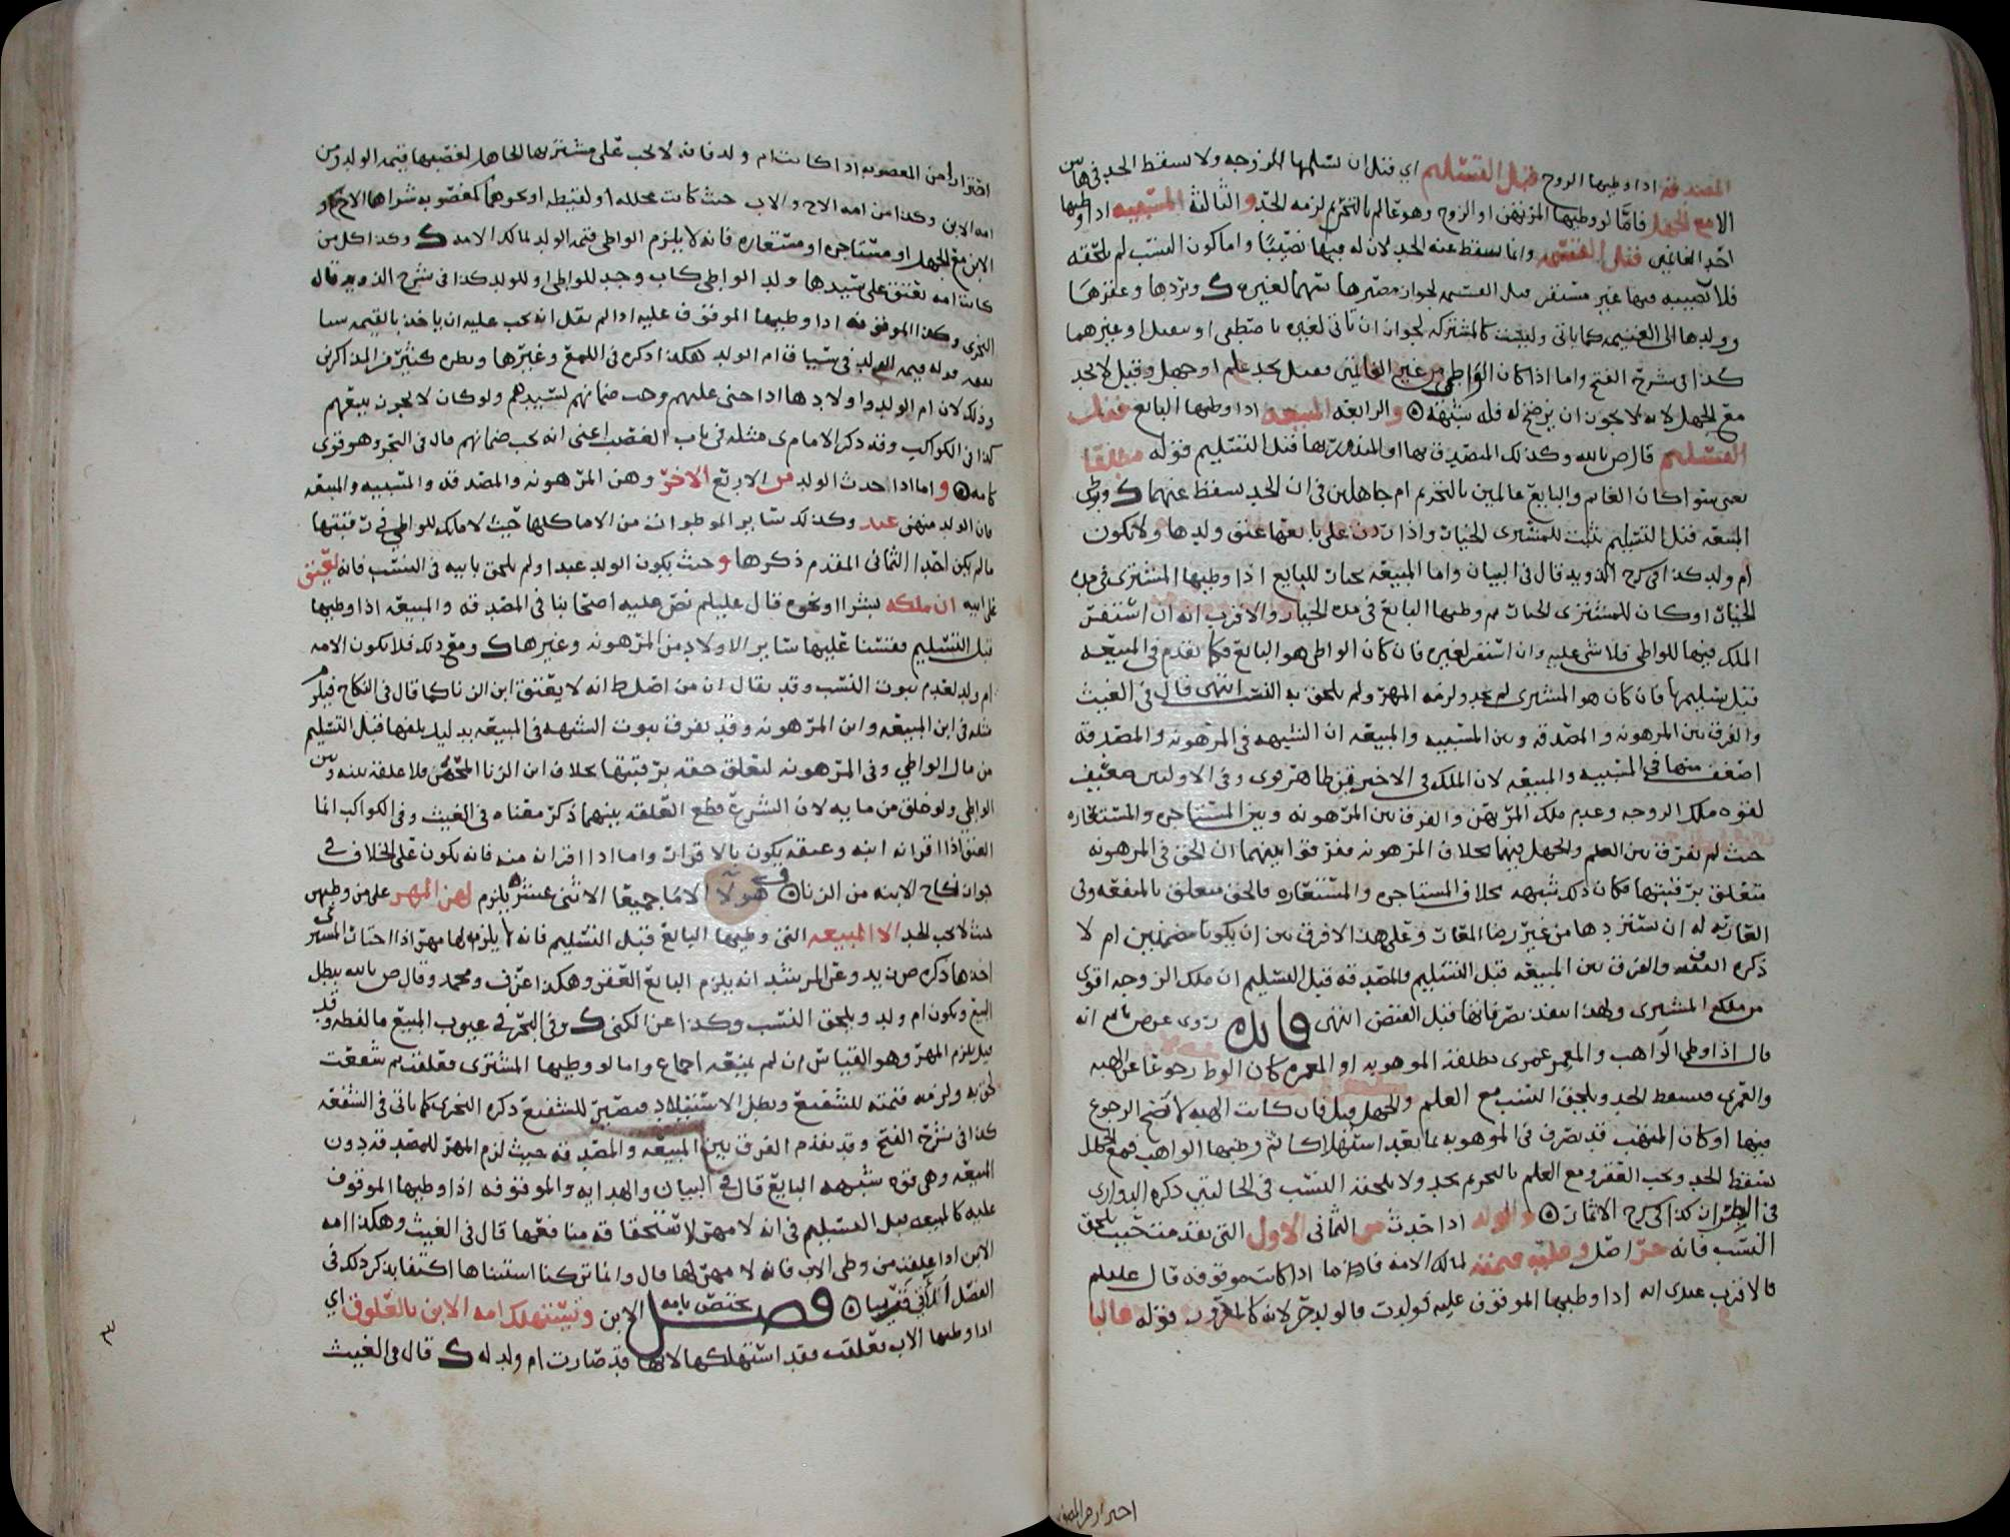 المصدقة اذا وطيها الزوج قبل التسليم اي قبل ان تسلمها الزوجه ولا يسقط الحد في هاتين
الا مع الجهل فاما لو وطيها المرتهن او الزوج وهو عالم بالتحريم لزمه الحد والثالثة المسبيه اذا وطيها
احد الغانمين قبل القسمه وانما يسقط عنه الحد لان له فيها نصيبا واما كون النسب لم يلحقه
فلان نصيبه فيها غير مستقر قبل القسمه لجواز مصيرها سهما لغيره ويردها وعقرها
وولدها الى الغنيمه كما ياتي وليست كالمشتركه لجواز ان تاتي لغيره باصطفى او تنفيل او غيرهما
كذا في شرح الفتح واما اذا كان الواطي من غير الغانمين فقيل يحد علم او جهل وقيل لا يحد
مع الجهل لانه لا يجوز ان يرضخ له فله شبهة والرابعه المبيعه اذا وطيها البايع قبل
التسليم قال ص بالله وكذلك المتصدق بها او المنذور بها قبل التسليم قوله مطلقا
يعني سوا كان الغانم والبايع عالمين بالتحريم ام جاهلين في ان الحد يسقط عنهما ووطي
المبيعه قبل التسليم يثبت للمشتري الخيار واذا ردت على بايعها عتق ولدها ولا تكون
ام ولد كذا في شرح الذويد قال في البيان واما المبيعه بخيار للبايع اذا وطيها المشتري في مده
الخيار او كان للمشتري الخيار ثم وطيها البايع في مده الخيار والاقرب انه ان استقر
الملك فيها للواطي فلا شي عليه وان استقر لغيره فان كان الواطي هو البايع فكما تقدم في المبيعه
قبل تسليمها فان كان هو المشتري لم يحد ولزمه المهر ولم يلحق به النسب انتهى قال في الغيث
والفرق بين المرهونه والمصدقه وبين المسبيه والمبيعه ان الشبهه في المرهونه والمصدقه
اضعف منها في المسبيه والمبيعه لان الملك في الاخيرتين ظاهر قوي وفي الاوليين ضعيف
لقوه ملك الزوجه وعدم ملك المرتهن والفرق بين المرهونه وبين المستاجره والمستعاره
حيث لم يفرق بين العلم والجهل فيهما بخلاف المرهونه ففرقوا بينهما ان الحق في المرهونه
متعلق برقبتها فكان ذلك شبهه بخلاف المستاجره والمستعاره فالحق متعلق بالمنفعه وفي
العاريه له ان يستردها من غير رضا المعار وعلى هذا لا فرق بين ان يكونا مضمنين ام لا
ذكره الفقيه والفرق بين المبيعه قبل التسليم والمصدقه قبل التسليم ان ملك الزوجه اقوى
من ملك المشتري ولهذا ينفذ تصرفاتها قبل القبض انتهى فايده روى عن ص بالله انه
قال اذا وطي الواهب والمعمر عمرى مطلقه الموهوبه او المعمره كان الوطا رجوعا عن الهبه
والعمرى فيسقط الحد ويلحق النسب مع العلم والجهل قيل فان كانت الهبه لا يصح الرجوع
فيها او كان المتهب قد تصرف في الموهوبه بما يعد استهلاكا ثم وطيها الواهب فمع الجهل
يسقط الحد ويجب العقر ومع العلم بالتحريم يحد ولا يلحقه النسب في الحالتين ذكره الدواري
في كذا في شرح الاثمار والولد اذا حدث من الثماني الاول التي تقدمت حيث يلحق
النسب فانه حر اصل وعليه قيمته لمالك الامه فاما اذا كانت موقوفه قال عليلم
فالاقرب عندي انه اذا وطيها الموقوف عليه فولدت فالولد حر لانه كالمغرور قوله غالبا
احترازا من المغصوبه
احترازا من المغصوبه اذا كانت ام ولد فانه لا يجب على مشتريها الجاهل لغصبها قيمه الولد ومن
امه الابن وكذا من امه الاخ والاب حيث كانت محلله او لقيطه او نحوهما كمغصوبه شراها الاخ او
الابن مع الجهل او مستاجره او مستعاره فانه لا يلزم الواطي قيمه الولد لمالك الامه وكذا كل من
كانت امه تعتق على سيدها ولد الواطي كاب وجد للواطي او للولد كذا في شرح الذويد قاله
النجري وكذا الموقوفه اذا وطيها الموقوف عليه اذا لم نقل انه يجب عليه ان ياخذ بالقيمه شيا
يقفه قوله قيمه الولد في شيا قام الولد هكذا ذكره في اللمع وغيرها ونظره كثير من المذاكرين
وذلك لان ام الولد واولادها اذا جنى عليهم وجب ضمانهم لسيدهم ولو كان لا يجوز بيعهم
كذا في الكواكب وقد ذكر الامام ى مثله في باب الغصب اعني انه يجب ضمانهم قال في البحر وهو قوي
كامه واما اذا حدث الولد من الاربع الاخر وهن المرهونه والمصدقه والمسبيه والمبيعه
فان الولد منهن عبد وكذلك ساير الموطوات من الاما كلها حيث لا ملك للواطي في رقبتها
ما لم يكن احدا الثماني المقدم ذكرها وحيث يكون الولد عبدا ولم يلحق بابيه في النسب فانه يعتق
على ابيه ان ملكه بشرا او نحوه قال عليلم نص عليه اصحابنا في المصدقه والمبيعه اذا وطيها
قبل التسليم فقسنا عليها ساير الاولاد من المرهونه وغيرها ومع ذلك فلا تكون الامه
ام ولد لعدم ثبوت النسب وقد يقال ان من اصل ط انه لا يعتق ابن الزنا كما قال في النكاح فيلزم
مثله في ابن المبيعه وابن المرهونه وقد يفرق بثبوت الشبهه في المبيعه بدليل تلفها قبل التسليم
من مال الواطي وفي المرهونه لتعلق حقه برقبتها بخلاف ابن الزنا المحض فلا علقه بينه وبين
الواطي ولو خلق من مايه لان الشرع قطع العلقه بينهما ذكر معناه في الغيث وفي الكواكب انما
العتق اذا اقر انه ابنه وعتقه يكون بالاقرار واما اذا اقر انه منه فانه يكون على الخلاف في
جواز نكاح الابنه من الزنا وفي هولا الاما جميعا الاثنى عشر يلزم لهن المهر على من وطيهن
حيث لا يجب الحد الا المبيعه التي وطيها البايع قبل التسليم فانه لا يلزمه لها مهر اذا اختار المشتري
اخذها ذكره ص زيد وعن المرشد انه يلزم البايع العقر وهكذا عن ف ومحمد وقال ص بالله يبطل
البيع وتكون ام ولد ويلحق النسب وكذا عن الكني وفي البحر في عيوب المبيع ما لفظه وقد
قيل يلزم المهر وهو القياس ان لم يمنعه اجماع واما لو وطيها المشتري فعلقت ثم شفعت
لحق به ولزمه قيمته للشفيع وبطل الاستيلاد فتصير للشفيع ذكره النجري كما ياتي في الشفعه
كذا في شرح الفتح وقد تقدم الفرق بين المبيعه والمصدقه حيث لزم المهر للمصدقه دون
المبيعه وهي قوه شبهه البايع قال في البيان والهدايه والموقوفه اذا وطيها الموقوف
عليه كالمبيعه قبل التسليم في انه لا مهر لاستحقاقه منافعها قال في الغيث وهكذا امه
الابن اذا علقت من وطي الاب فانه لا مهر لها قال وانما تركنا استثناها اكتفا بذكر ذلك في
الفصل الاتي قريبا فصل يختص بامه الابن وتستهلك امه الابن بالعلوق اي
اذا وطيها الاب فعلقت فقد استهلكها لانها قد صارت ام ولد له قال في الغيث
٣